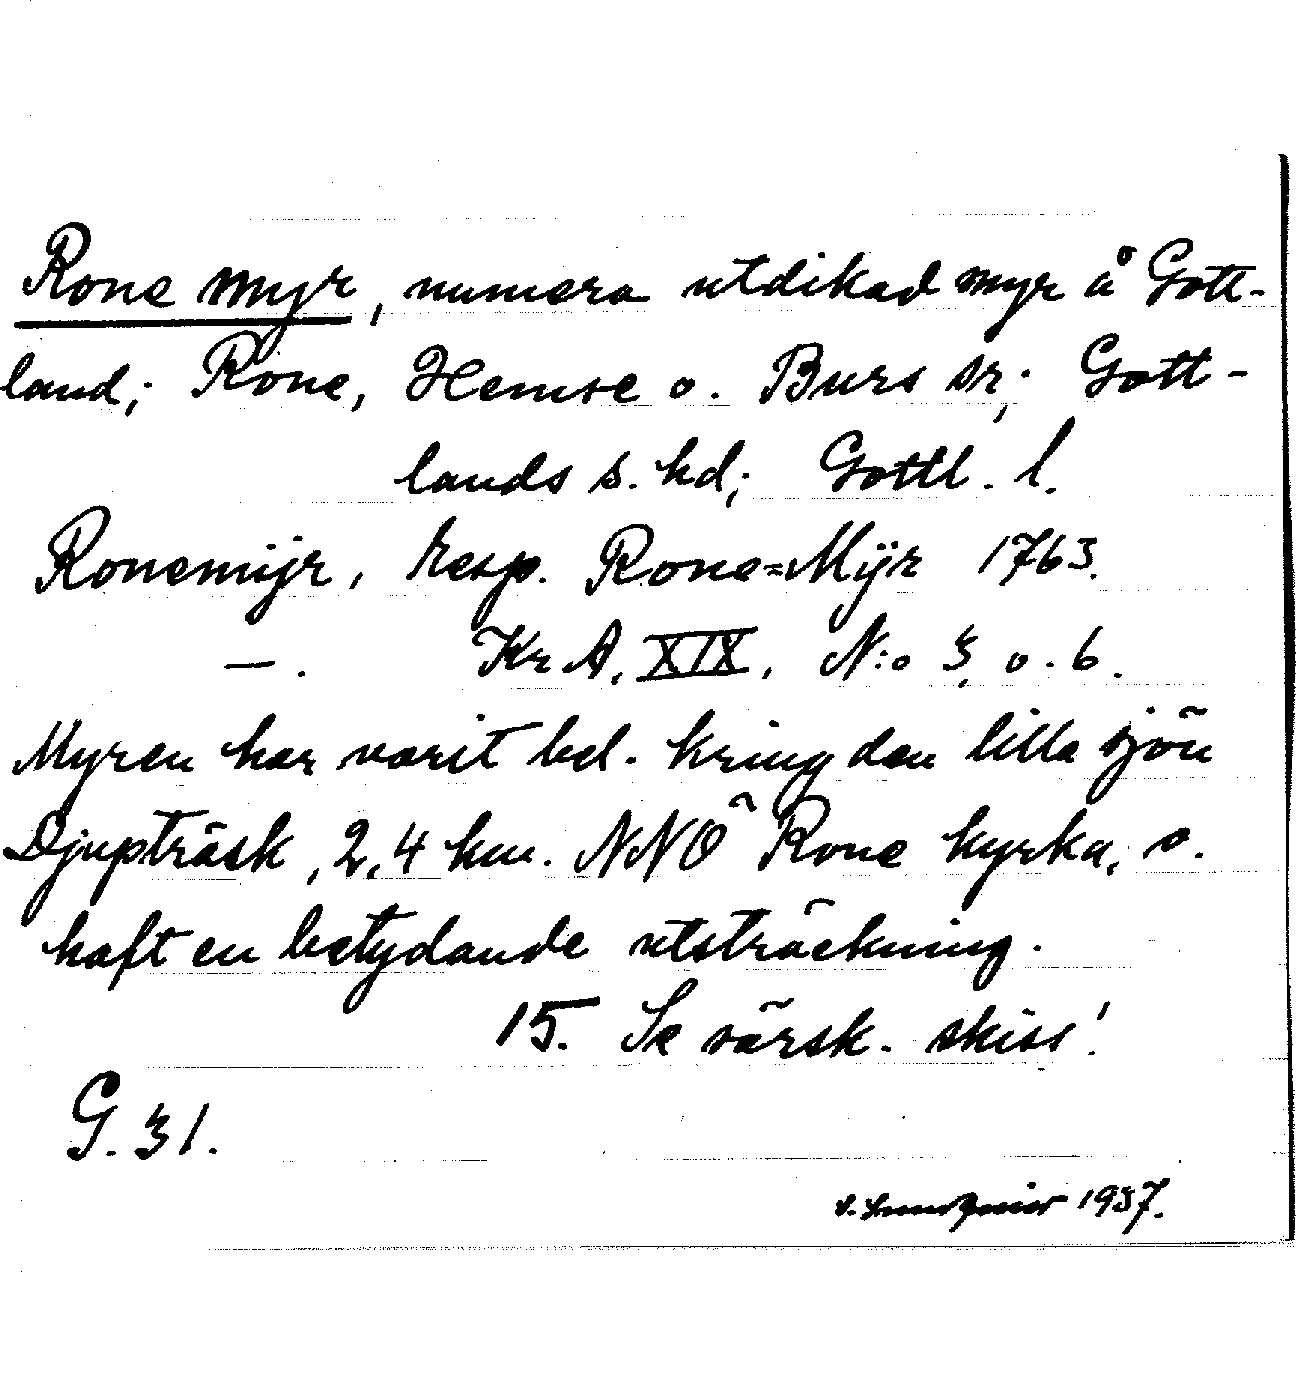 Rone myr, numera utdikad myr å Gott-
land; Rone, Hemse o. Burs sr; Gott-
lands s. hd; Gottl. l.
Ronemijr, resp. Rone=Mÿr 1763.
—. Kr A, XIX, N:o 3, o. 6.
Myren har varit bel. kring den lilla sjön
Djupträsk, 2,4 km. NNÖ Rone kyrka, o.
haft en betydande utsträckning.
15. Se särsk. skiss!
G. 31.
1937.